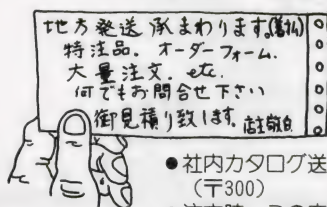 地方発送 承まわります。(着払)
特注品。オーダーフォーム.
大量注文. etc.
何でもお問合せ下さい
御見積り致します. 店主敬白
●社内カタログ送
(〒300)